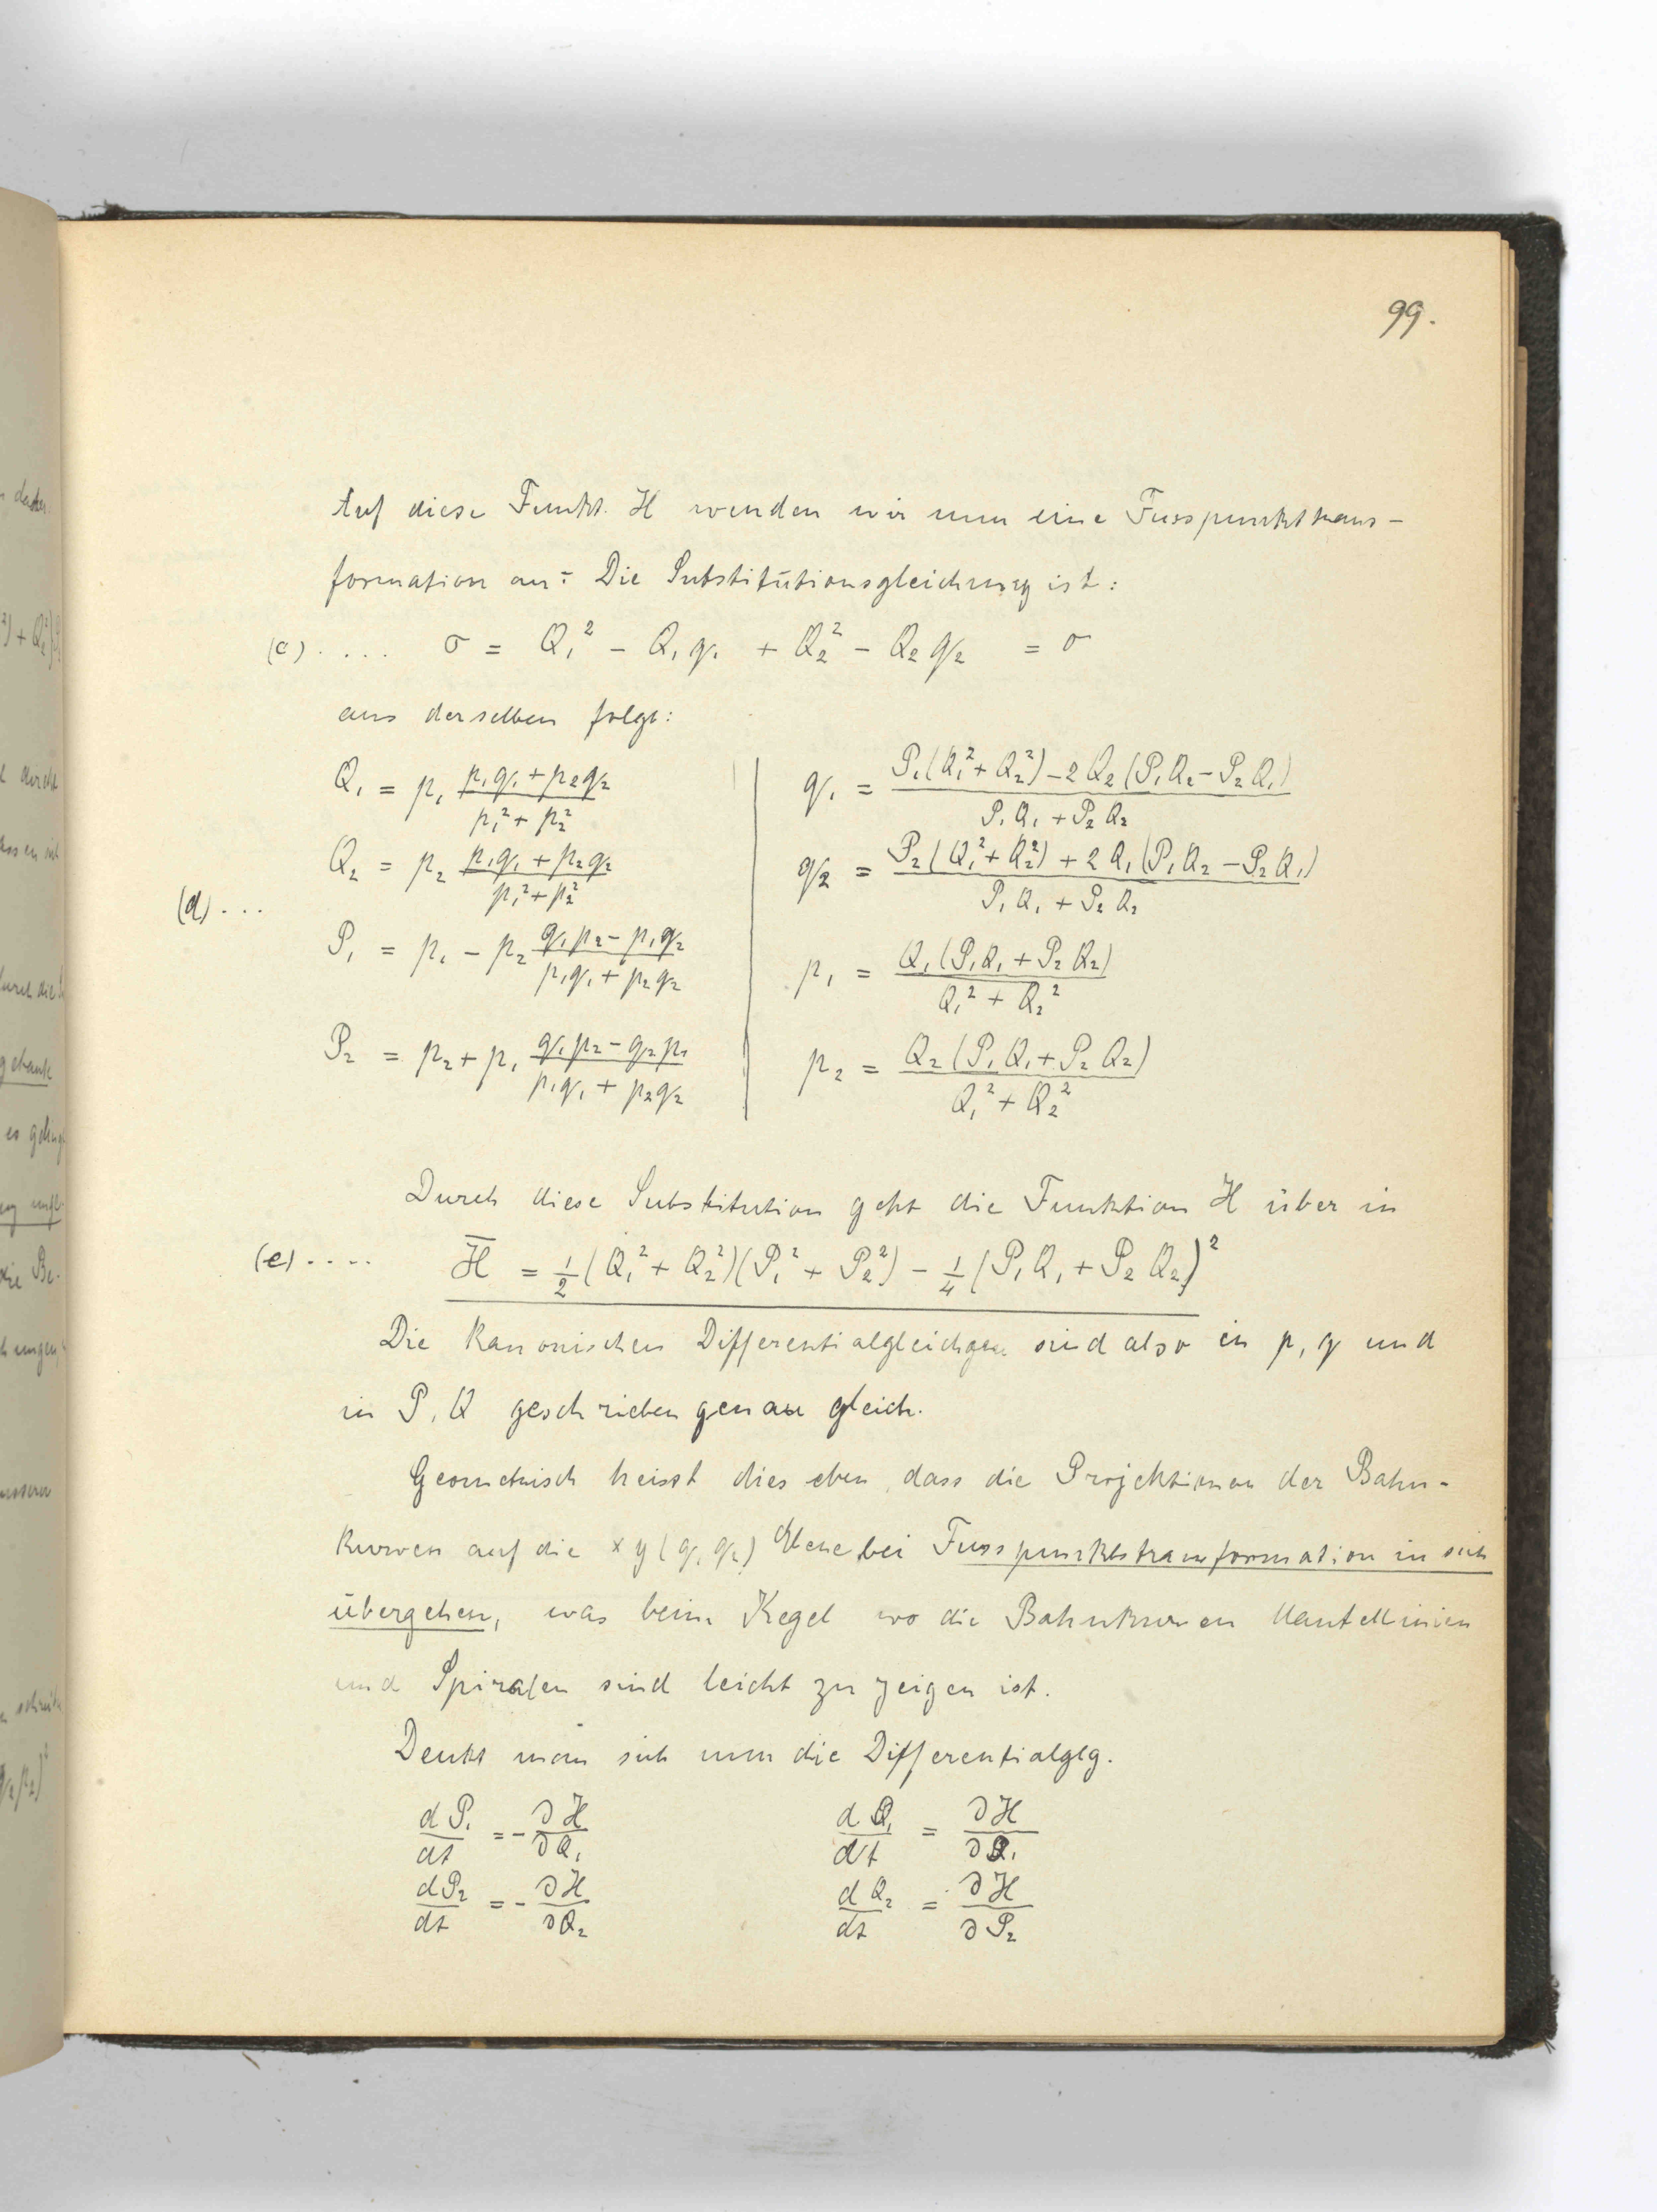 99.
Auf diese Funkt. H wenden wir nun eine Fusspunkttrans-
formation an: Die Substitutionsgleichung ist:
(c) .... σ = Q₁² - Q₁q₁ + Q₂² - Q₂q₂ = σ
aus derselben folgt:
Q₁ = p₁ (p₁q₁ + p₂q₂)/(p₁² + p₂²) | q₁ = (P₁(Q₁² + Q₂²) - 2Q₂(P₁Q₂ - P₂Q₁))/(P₁Q₁ + P₂Q₂)
Q₂ = p₂ (p₁q₁ + p₂q₂)/(p₁² + p₂²) | q₂ = (P₂(Q₁² + Q₂²) + 2Q₁(P₁Q₂ - P₂Q₁))/(P₁Q₁ + P₂Q₂)
(d) ...
P₁ = p₁ - p₂ (q₁p₂ - p₁q₂)/(p₁q₁ + p₂q₂) | p₁ = Q₁(P₁Q₁ + P₂Q₂)/(Q₁² + Q₂²)
P₂ = p₂ + p₁ (q₁p₂ - q₂p₁)/(p₁q₁ + p₂q₂) | p₂ = Q₂(P₁Q₁ + P₂Q₂)/(Q₁² + Q₂²)
Durch diese Substitution geht die Funktion H über in
(e) .... H̅ = ½(Q₁² + Q₂²)(P₁² + P₂²) - ¼(P₁Q₁ + P₂Q₂)²
Die kanonischen Differentialgleichgen sind also in p, q und
in P, Q geschrieben genau gleich.
Geometrisch heisst dies eben, dass die Projektionen der Bahn-
kurven auf die xy (q₁ q₂) Ebene bei Fusspunktstransformation in sich
übergehen, was beim Kegel wo die Bahnkurven Mantellinien
und Spiralen sind leicht zu zeigen ist.
Denkt man sich nun die Differentialglg.
dP₁/dt = - ∂H/∂Q₁ dQ₁/dt = ∂H/∂Q₁
dP₂/dt = - ∂H/∂Q₂ dQ₂/dt = ∂H/∂P₂